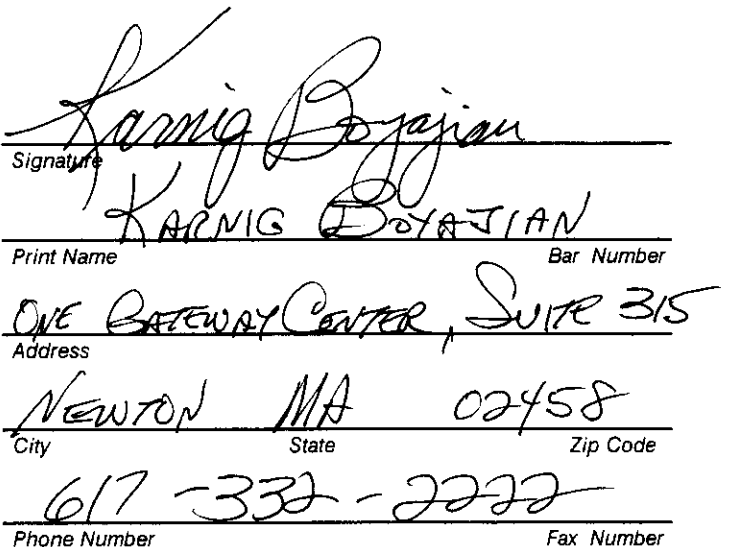 Karnig Boyajian
Signature
KARNIG BOYAJIAN
Print Name Bar Number
ONE GATEWAY CENTER, SUITE 315
Address
NEWTON MA 02458
City State Zip Code
617-332-2222
Phone Number Fax Number